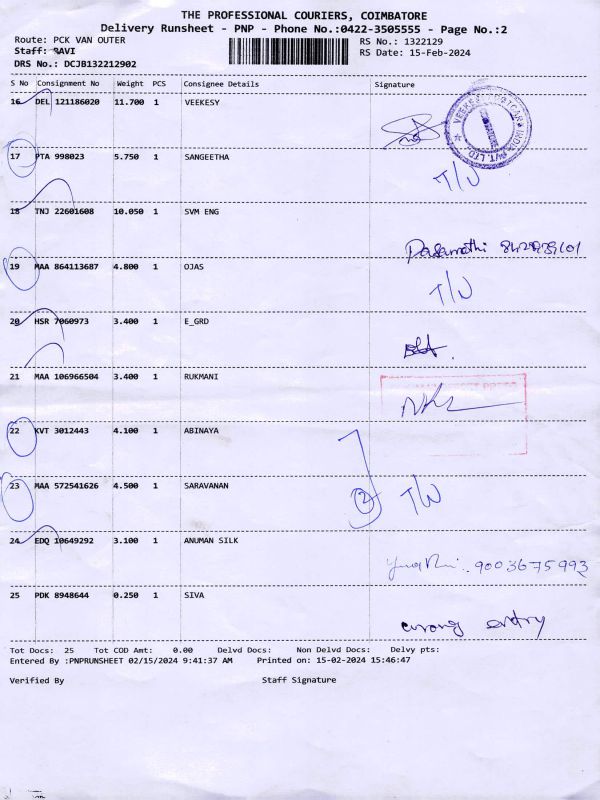 THE PROFESSIONAL COURIERS, COIMBATORE
Delivery Runsheet - PNP - Phone No.:0422-3505555 - Page No.:2
Route: PCK VAN OUTER RS No.: 1322129
Staff: SAVI RS Date: 15-Feb-2024
DRS No.: DCJB132212902
S No Consignment No Weight PCS Consignee Details Signature
16 DEL 121186020 11.700 1 VEEKESY
17 PTA 998023 5.750 1 SANGEETHA
T/W
18 TNJ 22601608 10.050 1 SVM ENG
19 MAA 864113687 4.800 1 OJAS
T/W
20 HSR 7060973 3.400 1 E_GRD
21 MAA 106966504 3.400 1 RUKMANI
22 KVT 3012443 4.100 1 ABINAYA
23 MAA 572541626 4.500 1 SARAVANAN
2 T/W
24 EDQ 10649292 3.100 1 ANUMAN SILK
9003675993
25 PDK 8948644 0.250 1 SIVA
wrong entry
Tot Docs: 25 Tot COD Amt: 0.00 Delvd Docs: Non Delvd Docs: Delvy pts:
Entered By :PNPRUNSHEET 02/15/2024 9:41:37 AM Printed on: 15-02-2024 15:46:47
Verified By Staff Signature